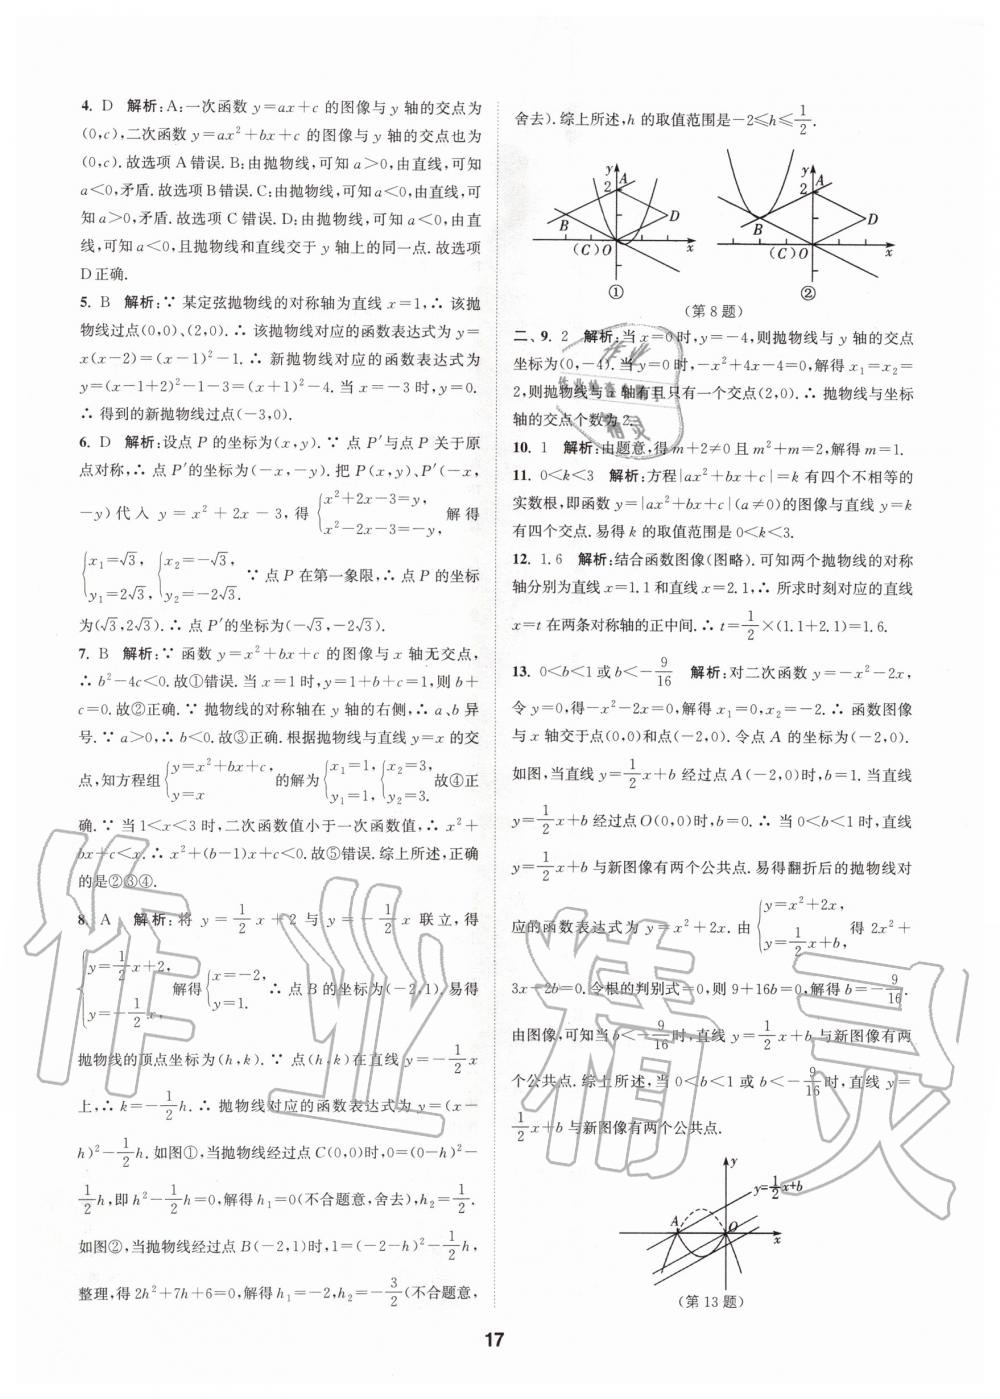 4. D 解析:A:一次函数 y=ax+c 的图像与 y 轴的交点为
(0,c),二次函数 y=ax²+bx+c 的图像与 y 轴的交点也为
(0,c).故选项 A 错误. B:由抛物线,可知 a>0,由直线,可知
a<0,矛盾.故选项 B 错误. C:由抛物线,可知 a<0,由直线,可知
a>0,矛盾.故选项 C 错误. D:由抛物线,可知 a<0,由直
线,可知 a<0,且抛物线和直线交于 y 轴上的同一点.故选项
D 正确.
5. B 解析:∵ 某定弦抛物线的对称轴为直线 x=1,∴ 该抛
物线过点(0,0)、(2,0).∴ 该抛物线对应的函数表达式为 y=
x(x-2)=(x-1)²-1.∴ 新抛物线对应的函数表达式为
y=(x-1+2)²-1-3=(x+1)²-4.当 x=-3 时,y=0.
∴ 得到的新抛物线过点(-3,0).
6. D 解析:设点 P 的坐标为(x,y).∵ 点 P′与点 P 关于原
点对称,∴ 点 P′的坐标为(-x,-y).把 P(x,y)、P′(-x,
-y)代入 y=x²+2x-3,得 {x²+2x-3=y, x²-2x-3=-y, 解得
{x₁=√3, y₁=2√3, {x₂=-√3, y₂=-2√3. ∵ 点 P 在第一象限,∴ 点 P 的坐标
为(√3,2√3).∴ 点 P′的坐标为(-√3,-2√3).
7. B 解析:∵ 函数 y=x²+bx+c 的图像与 x 轴无交点,
∴ b²-4c<0.故①错误.当 x=1 时,y=1+b+c=1,则 b+
c=0.故②正确.∵ 抛物线的对称轴在 y 轴的右侧,∴ a、b 异
号.∵ a>0,∴ b<0.故③正确.根据抛物线与直线 y=x 的交
点,知方程组 {y=x²+bx+c, y=x 的解为 {x₁=1, y₁=1, {x₂=3, y₂=3. 故④正
确.∵ 当 1<x<3 时,二次函数值小于一次函数值,∴ x²+
bx+c<x.∴ x²+(b-1)x+c<0.故⑤错误.综上所述,正确
的是②③④.
8. A 解析:将 y=1/2x+2 与 y=-1/2x 联立,得
{y=1/2x+2, y=-1/2x, 解得 {x=-2, y=1. ∴ 点 B 的坐标为(-2,1).易得
抛物线的顶点坐标为(h,k).∵ 点(h,k)在直线 y=-1/2x
上,∴ k=-1/2h.∴ 抛物线对应的函数表达式为 y=(x-
h)²-1/2h.如图①,当抛物线经过点 C(0,0)时,0=(0-h)²-
1/2h,即 h²-1/2h=0,解得 h₁=0(不合题意,舍去),h₂=1/2.
如图②,当抛物线经过点 B(-2,1)时,1=(-2-h)²-1/2h,
整理,得 2h²+7h+6=0,解得 h₁=-2,h₂=-3/2(不合题意,
舍去).综上所述,h 的取值范围是-2≤h≤1/2.
y
2
A
B
D
(C)
O
x
①
y
2
A
B
D
(C)
O
x
②
(第 8 题)
二、9. 2 解析:当 x=0 时,y=-4,则抛物线与 y 轴的交点
坐标为(0,-4).当 y=0 时,-x²+4x-4=0,解得 x₁=x₂=
2,则抛物线与 x 轴有且只有一个交点(2,0).∴ 抛物线与坐标
轴的交点个数为 2.
10. 1 解析:由题意,得 m+2≠0 且 m²+m=2,解得 m=1.
11. 0<k<3 解析:方程|ax²+bx+c|=k 有四个不相等的
实数根,即函数 y=|ax²+bx+c|(a≠0)的图像与直线 y=k
有四个交点.易得 k 的取值范围是 0<k<3.
12. 1.6 解析:结合函数图像(图略).可知两个抛物线的对称
轴分别为直线 x=1.1 和直线 x=2.1,∴ 所求时刻对应的直线
x=t 在两条对称轴的正中间.∴ t=1/2×(1.1+2.1)=1.6.
13. 0<b<1 或 b<-9/16 解析:对二次函数 y=-x²-2x,
令 y=0,得-x²-2x=0,解得 x₁=0,x₂=-2.∴ 函数图像
与 x 轴交于点(0,0)和点(-2,0).令点 A 的坐标为(-2,0).
如图,当直线 y=1/2x+b 经过点 A(-2,0)时,b=1.当直线
y=1/2x+b 经过点 O(0,0)时,b=0.∴ 当 0<b<1 时,直线
y=1/2x+b 与新图像有两个公共点.易得翻折后的抛物线对
应的函数表达式为 y=x²+2x.由 {y=x²+2x, y=1/2x+b, 得 2x²+
3x-2b=0.令根的判别式=0,则 9+16b=0,解得 b=-9/16.
由图像,可知当 b<-9/16时,直线 y=1/2x+b 与新图像有两
个公共点.综上所述,当 0<b<1 或 b<-9/16时,直线 y=
1/2x+b 与新图像有两个公共点.
y
y=1/2x+b
A
O
x
(第 13 题)
17
作业精灵